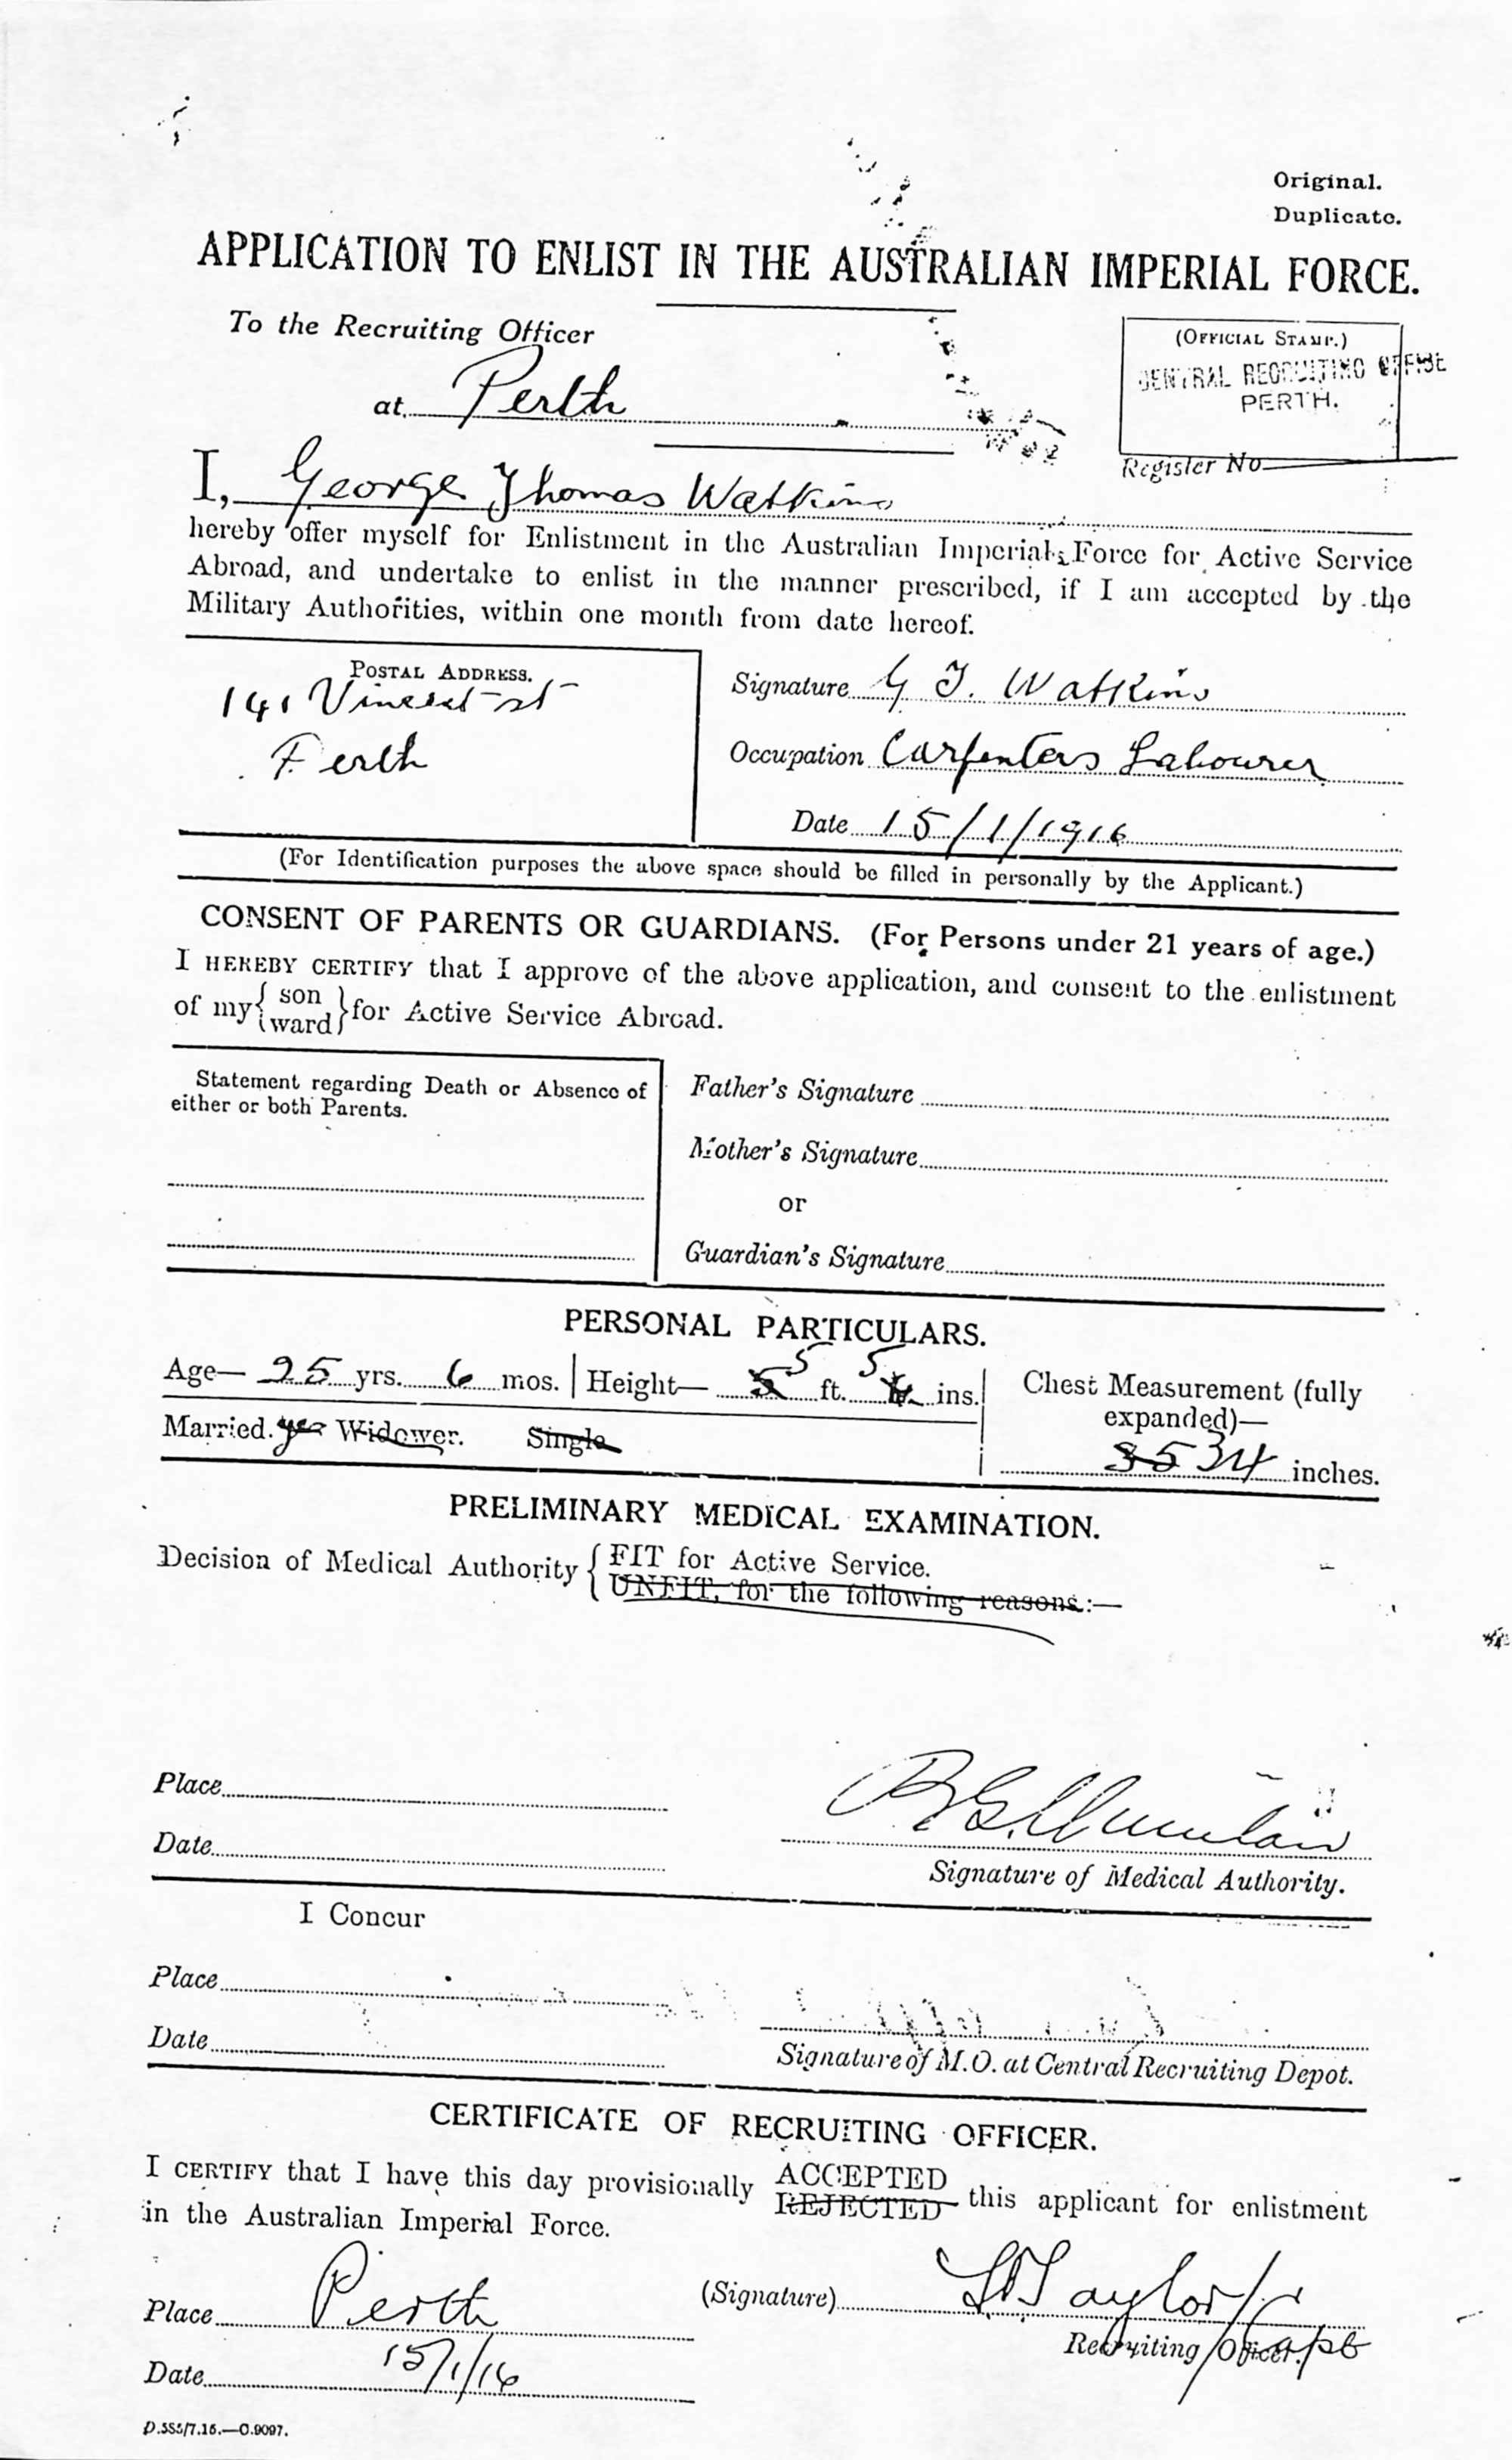 Original.
Duplicate.
APPLICATION TO ENLIST IN THE AUSTRALIAN IMPERIAL FORCE.
To the Recruiting Officer
at Perth
(OFFICIAL STAMP.)
CENTRAL RECRUITING OFFICE
PERTH.
Register No
I, George Thomas Watkins
hereby offer myself for Enlistment in the Australian Imperial Force for Active Service
Abroad, and undertake to enlist in the manner prescribed, if I am accepted by the
Military Authorities, within one month from date hereof.
POSTAL ADDRESS.
141 Vincent st
Perth
Signature G T. Watkins
Occupation Carpenters Labourer
Date 15/1/1916
(For Identification purposes the above space should be filled in personally by the Applicant.)
CONSENT OF PARENTS OR GUARDIANS. (For Persons under 21 years of age.)
I HEREBY CERTIFY that I approve of the above application, and consent to the enlistment
of my { son ward } for Active Service Abroad.
Statement regarding Death or Absence of
either or both Parents.
Father's Signature
Mother's Signature
or
Guardian's Signature
PERSONAL PARTICULARS.
Age— 25 yrs. 6 mos. Height— 5 ft. 5 ins.
Married. yes Widower. Single
Chest Measurement (fully
expanded)—
35 34 inches.
PRELIMINARY MEDICAL EXAMINATION.
Decision of Medical Authority { FIT for Active Service.
UNFIT, for the following reasons:—
Place
Date
Signature of Medical Authority.
I Concur
Place
Date
Signature of M.O. at Central Recruiting Depot.
CERTIFICATE OF RECRUITING OFFICER.
I CERTIFY that I have this day provisionally ACCEPTED REJECTED this applicant for enlistment
in the Australian Imperial Force.
Place Perth
(Signature) Taylor
Recruiting Officer. Capt
Date 15/1/16
D.355/7.15.—C.9097.